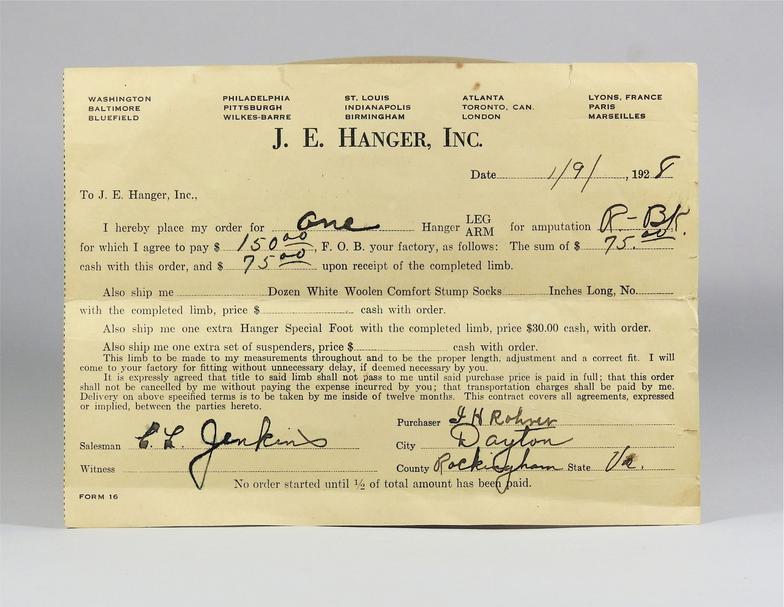 WASHINGTON PHILADELPHIA ST. LOUIS ATLANTA LYONS, FRANCE
BALTIMORE PITTSBURGH INDIANAPOLIS TORONTO, CAN. PARIS
BLUEFIELD WILKES-BARRE BIRMINGHAM LONDON MARSEILLES
J. E. HANGER, INC.
Date 1/9/, 1928
To J. E. Hanger, Inc.,
I hereby place my order for one Hanger LEG ARM for amputation R-BK.
for which I agree to pay $ 150.00, F. O. B. your factory, as follows: The sum of $ 75.00
cash with this order, and $ 75.00 upon receipt of the completed limb.
Also ship me Dozen White Woolen Comfort Stump Socks Inches Long, No.
with the completed limb, price $ cash with order.
Also ship me one extra Hanger Special Foot with the completed limb, price $30.00 cash, with order.
Also ship me one extra set of suspenders, price $ cash with order.
This limb to be made to my measurements throughout and to be the proper length, adjustment and a correct fit. I will
come to your factory for fitting without unnecessary delay, if deemed necessary by you.
It is expressly agreed that title to said limb shall not pass to me until said purchase price is paid in full; that this order
shall not be cancelled by me without paying the expense incurred by you; that transportation charges shall be paid by me.
Delivery on above specified terms is to be taken by me inside of twelve months. This contract covers all agreements, expressed
or implied, between the parties hereto.
Purchaser I H Rohrer
Salesman C. L. Jenkins City Dayton
Witness County Rockingham State Va.
No order started until ½ of total amount has been paid.
FORM 16